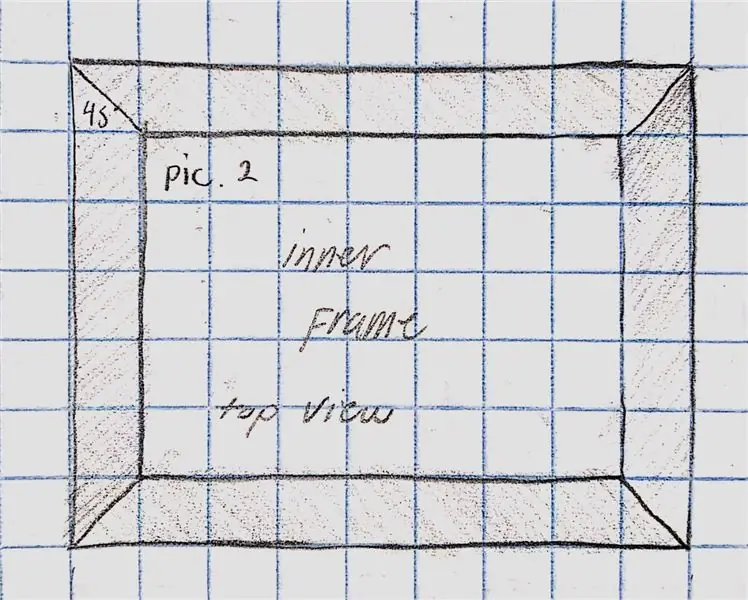 45°
pic. 2
inner
Frame
top view